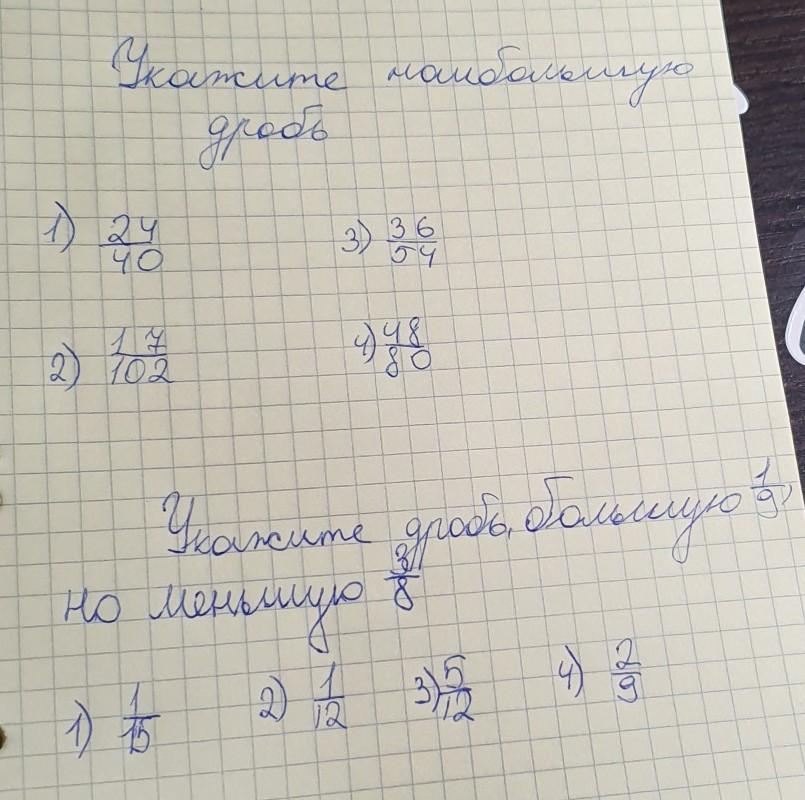 Укажите наибольшую
дробь
1) 24/40 3) 36/54
2) 17/102 4) 48/80
Укажите дробь, большую 1/9,
но меньшую 3/8
1) 1/15 2) 1/12 3) 5/12 4) 2/9